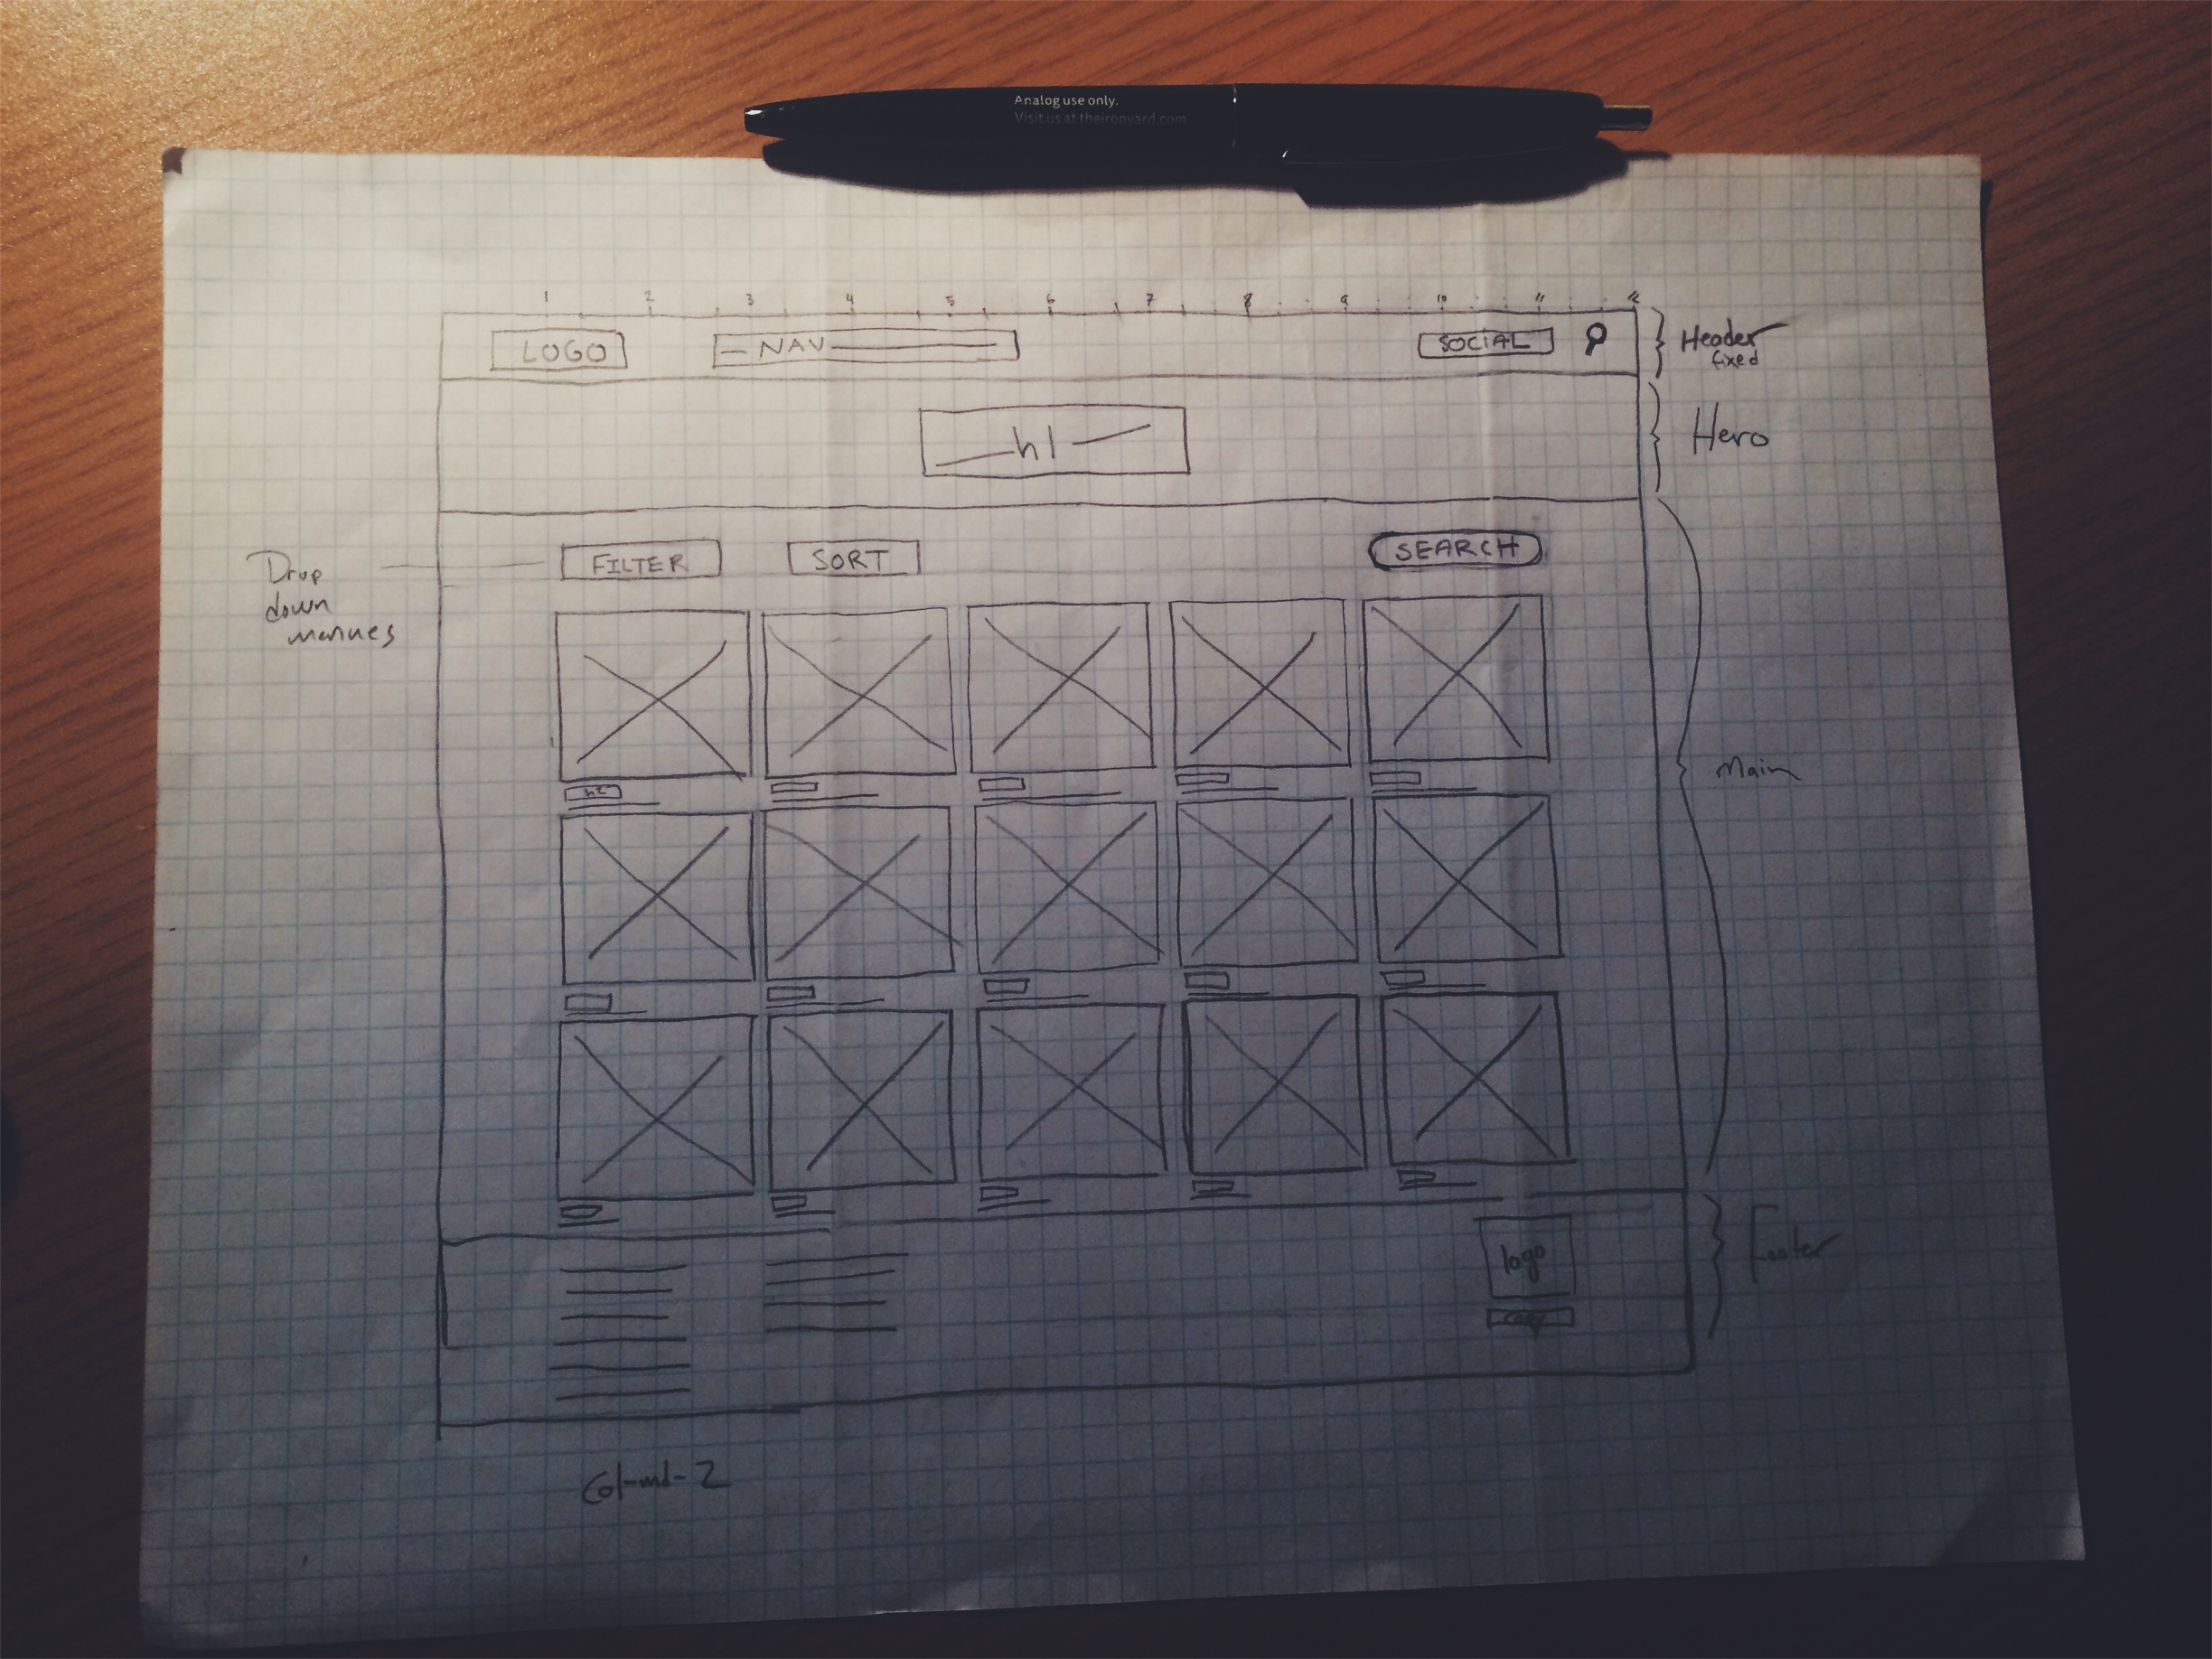 Analog use only.
Visit us at theironyard.com
1 2 3 4 5 6 7 8 9 10 11 12
LOGO
NAV
SOCIAL
Header
fixed
h1
Hero
Drop
down
menues
FILTER
SORT
SEARCH
h2
Main
logo
copy
Footer
Col-md-2